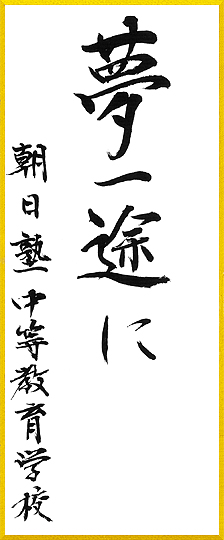 夢一途に
朝日塾中等教育学校